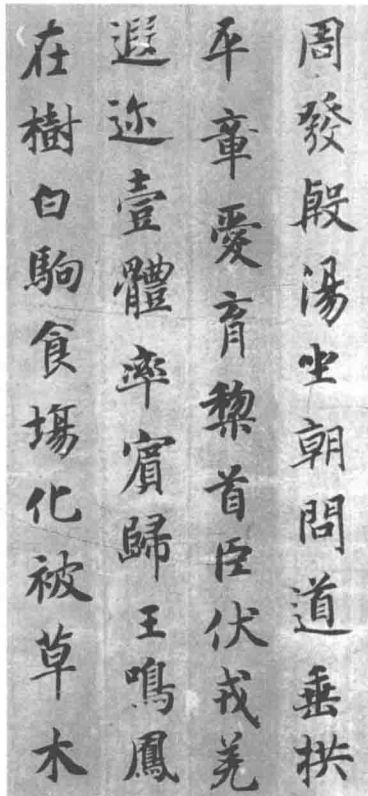 周發殷湯坐朝問道垂拱
平章愛育黎首臣伏戎羌
遐迩壹體率賓歸王鳴鳳
在樹白駒食場化被草木